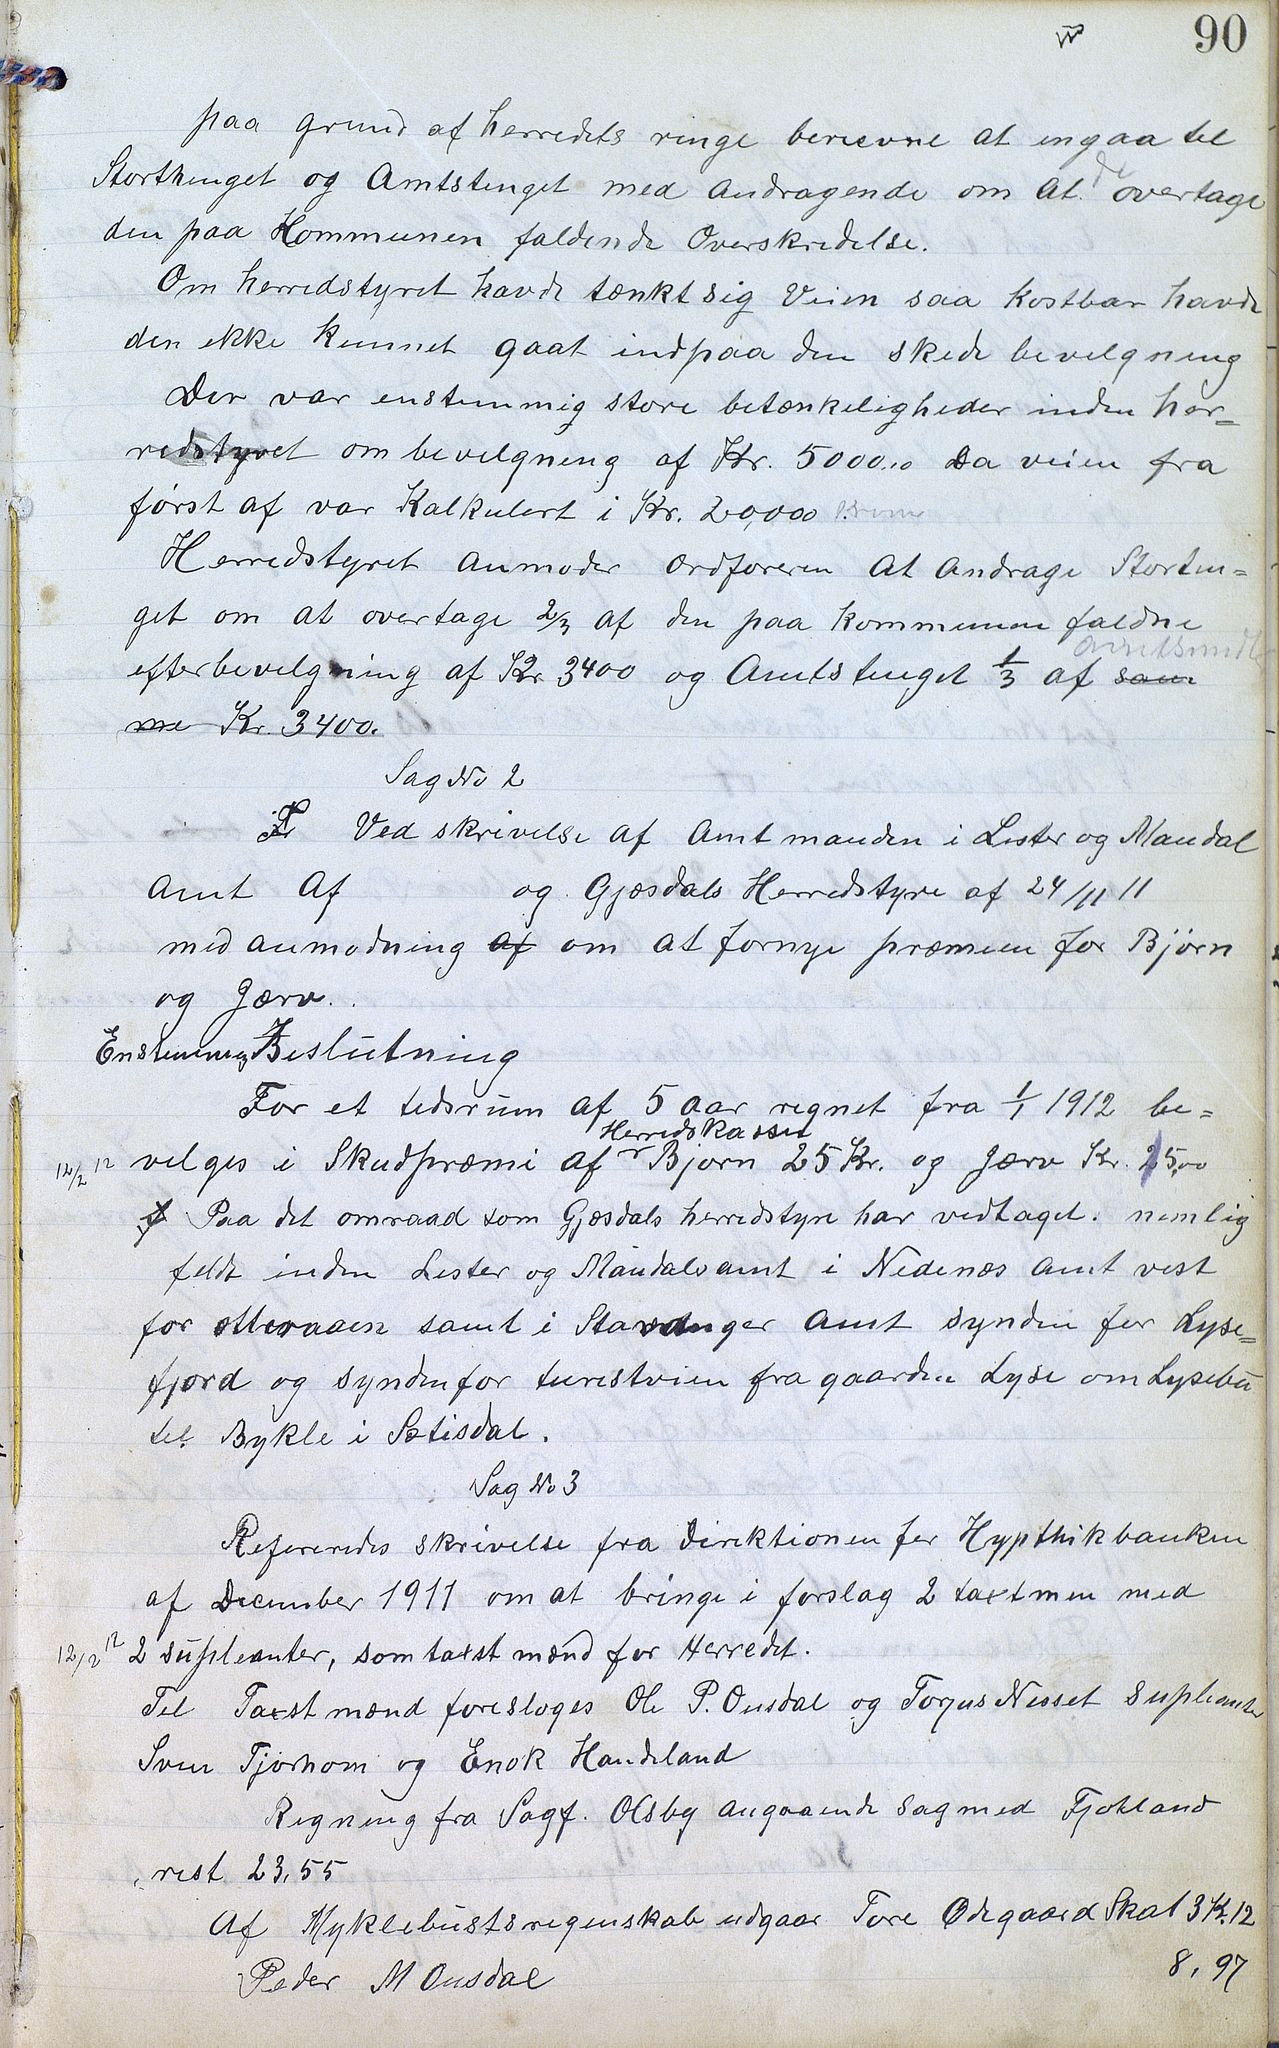 90
paa grund af herredets ringe bereevne at ingaa til
Storthinget og Amtstinget med andragende om at de overtage
den paa Kommunen faldende Overskridelse.
Om herredstyret havde tænkt sig Veien saa Kostbar havde
den ikke kunnet gaat indpaa den skede bevilgning
Der var enstemmig store betænkeligheder inden her=
redstyret om bevilgning af Kr. 5000.00 Da veien fra
først af var Kalkulert i Kr. 20,000 Krone
Herredstyret anmoder Ordføreren at andrage Stortin=
get om at overtage 2/3 af den paa kommunen faldne
efterbevilgning af Kr 3400 og Amtstinget 1/3 af sam
me Kr. 3400.
Sag No 2
Ved skrivelse af Amtmanden i Lister og Mandal
Amt Af og Gjæsdals Herredstyre af 24/11 11
med anmodning af om at fornye præmien for Bjørn
og Jærv.
Enstemmig Beslutning
For et tidsrum af 5 aar regnet fra 1/1 1912 be=
Herredskassen
12/2 12 velges i Skudpræmi af Bjørn 25 Kr. og Jærv Kr. 25,00
Paa det omraad som Gjæsdals herredstyre har vedtaget. nemlig
feldt inden Lister og Mandals amt i Nedenæs Amt vest
for otteraaen samt i Stavanger Amt synden for Lyse=
fjord og syndenfor turistveien fra gaarden Lyse om Lysebu
til Bykle i Sætisdal.
Sag No 3
Refereredes skrivelse fra Direktionen for Hypthikbanken
af December 1911 om at bringe i forslag 2 taxtmen med
12/2 12 2 supleanter, som taxst mænd for Herredet.
Til Taxst mænd foresloges Ole P. Ousdal og Torjus Nesset Supleanter
Sven Tjørhom og Enok Haudeland
Regning fra Sagf. Olsby angaaende sag med Fjotland
rest 23,55
Af Myklebusts regenskab udgaar Tore Ødegaard Skat 3 Kr. 12
Peder M Ousdal 8,97